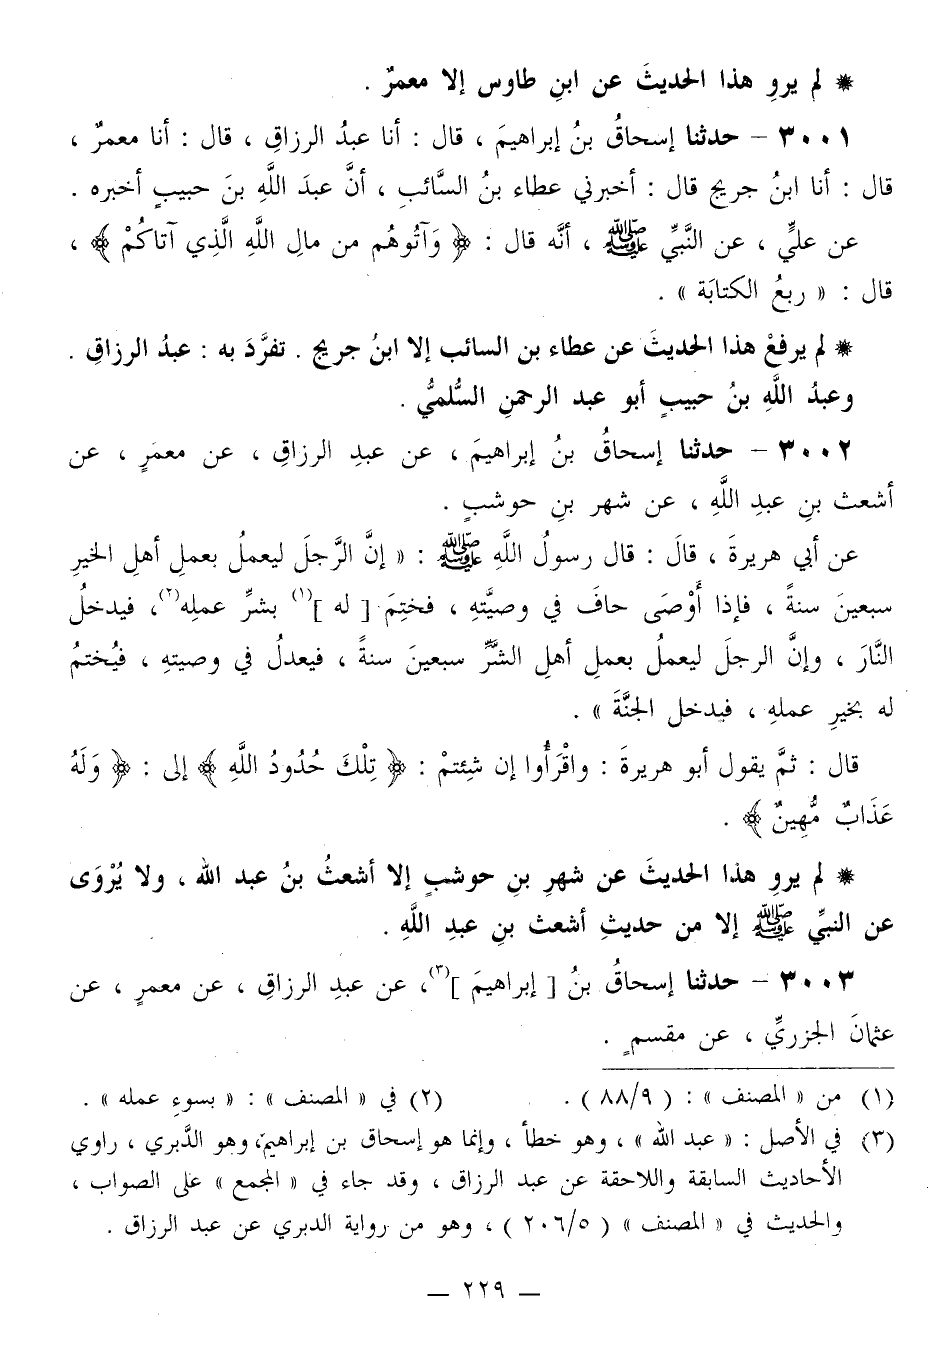 * لم يروِ هذا الحديثَ عن ابنِ طاوس إلا معمرٌ .
٣٠٠١ – حدثنا إسحاقُ بنُ إبراهيمَ ، قال : أنا عبدُ الرزاقِ ، قال : أنا معمرٌ ،
قال : أنا ابنُ جريج قال : أخبرني عطاء بنُ السَّائبِ ، أنَّ عبدَ اللَّهِ بنَ حبيبٍ أخبره .
عن عليٍّ ، عن النَّبيِّ ﷺ ، أنَّه قال : ﴿ وَآتُوهُم من مالِ اللَّهِ الَّذِي آتاكُمْ ﴾ ،
قال : « ربعُ الكتابَة » .
* لم يرفعْ هذا الحديثَ عن عطاء بن السائب إلا ابنُ جريج . تفرَّدَ به : عبدُ الرزاقِ .
وعبدُ اللَّهِ بنُ حبيبٍ أبو عبد الرحمنِ السُّلميُّ .
٣٠٠٢ – حدثنا إسحاقُ بنُ إبراهيمَ ، عن عبدِ الرزاقِ ، عن معمَرٍ ، عن
أشعث بنِ عبدِ اللَّهِ ، عن شهر بنِ حوشبٍ .
عن أبي هريرةَ ، قالَ : قال رسولُ اللَّهِ ﷺ : « إنَّ الرَّجلَ ليعملُ بعملِ أهلِ الخيرِ
سبعينَ سنةً ، فإذا أَوْصَى حافَ في وصيَّتهِ ، فختِمَ [ له ](١) بشرِّ عمله(٢)، فيدخلُ
النَّارَ ، وإنَّ الرجلَ ليعملُ بعملِ أهلِ الشرِّ سبعينَ سنةً ، فيعدلُ في وصيتهِ ، فيُختمُ
له بخيرِ عملهِ ، فيدخل الجنَّةَ » .
قال : ثمَّ يقول أبو هريرةَ : واقْرَأُوا إن شِئتمْ : ﴿ تِلْكَ حُدُودُ اللَّهِ ﴾ إلى : ﴿ وَلَهُ
عَذَابٌ مُّهِينٌ ﴾ .
* لم يروِ هذا الحديثَ عن شهرِ بنِ حوشبٍ إلا أشعثُ بنُ عبد الله ، ولا يُرْوَى
عن النبيِّ ﷺ إلا من حديثِ أشعث بنِ عبدِ اللَّهِ .
٣٠٠٣ – حدثنا إسحاقُ بنُ [ إبراهيمَ ](٣)، عن عبدِ الرزاقِ ، عن معمرٍ ، عن
عثمانَ الجزريِّ ، عن مقسمٍ .
(١) من « المصنف » : ( ٨٨/٩ ) . (٢) في « المصنف » : « بسوءِ عمله » .
(٣) في الأصل : « عبد الله » ، وهو خطأ ، وإنما هو إسحاق بن إبراهيمَ، وهو الدَّبري ، راوي
الأحاديث السابقة واللاحقة عن عبد الرزاق ، وقد جاء في « المجمع » على الصواب ،
والحديث في « المصنف » ( ٢٠٦/٥ ) ، وهو من رواية الدبري عن عبد الرزاق .
— ٢٢٩ —